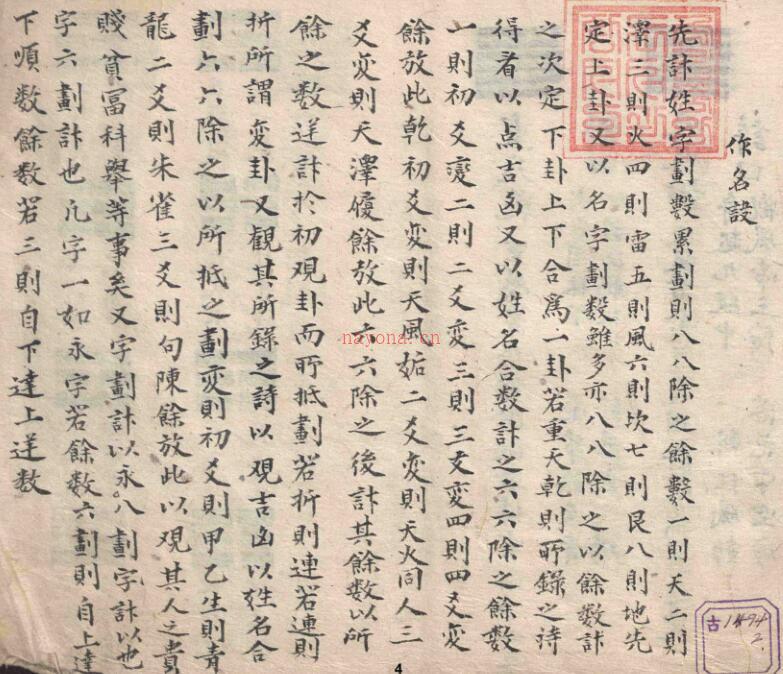 作名設
先計姓字劃數累劃則八八除之餘數一則天二則
澤三則火四則雷五則風六則坎七則艮八則地先
定上卦又以名字劃數雖多亦八八除之以餘數計
之次定下卦上下合爲一卦若重天乾則所錄之詩
得看以点吉凶又以姓名合數計之六六除之餘數
一則初爻變二則二爻変三則三爻変四則四爻変
餘放此乾初爻変則天風姤二爻変則天火同人三
爻変則天澤履餘放此六六除之後計其餘數以所
餘之数逆計於初观卦而所抵劃若折則連若連則
折所謂変卦又觀其所錄之詩以观吉凶以姓名合
劃六六除之以所抵之劃変則初爻則甲乙生則青
龍二爻則朱雀三爻則句陳餘放此以观其人之貴
賤貧冨科舉等事矣又字劃計以永八劃字計以也
字六劃計也凡字一如永字若餘数六劃則自上達
下順数餘数若三則自下達上逆数
nayona.cn
古1494
2.
4